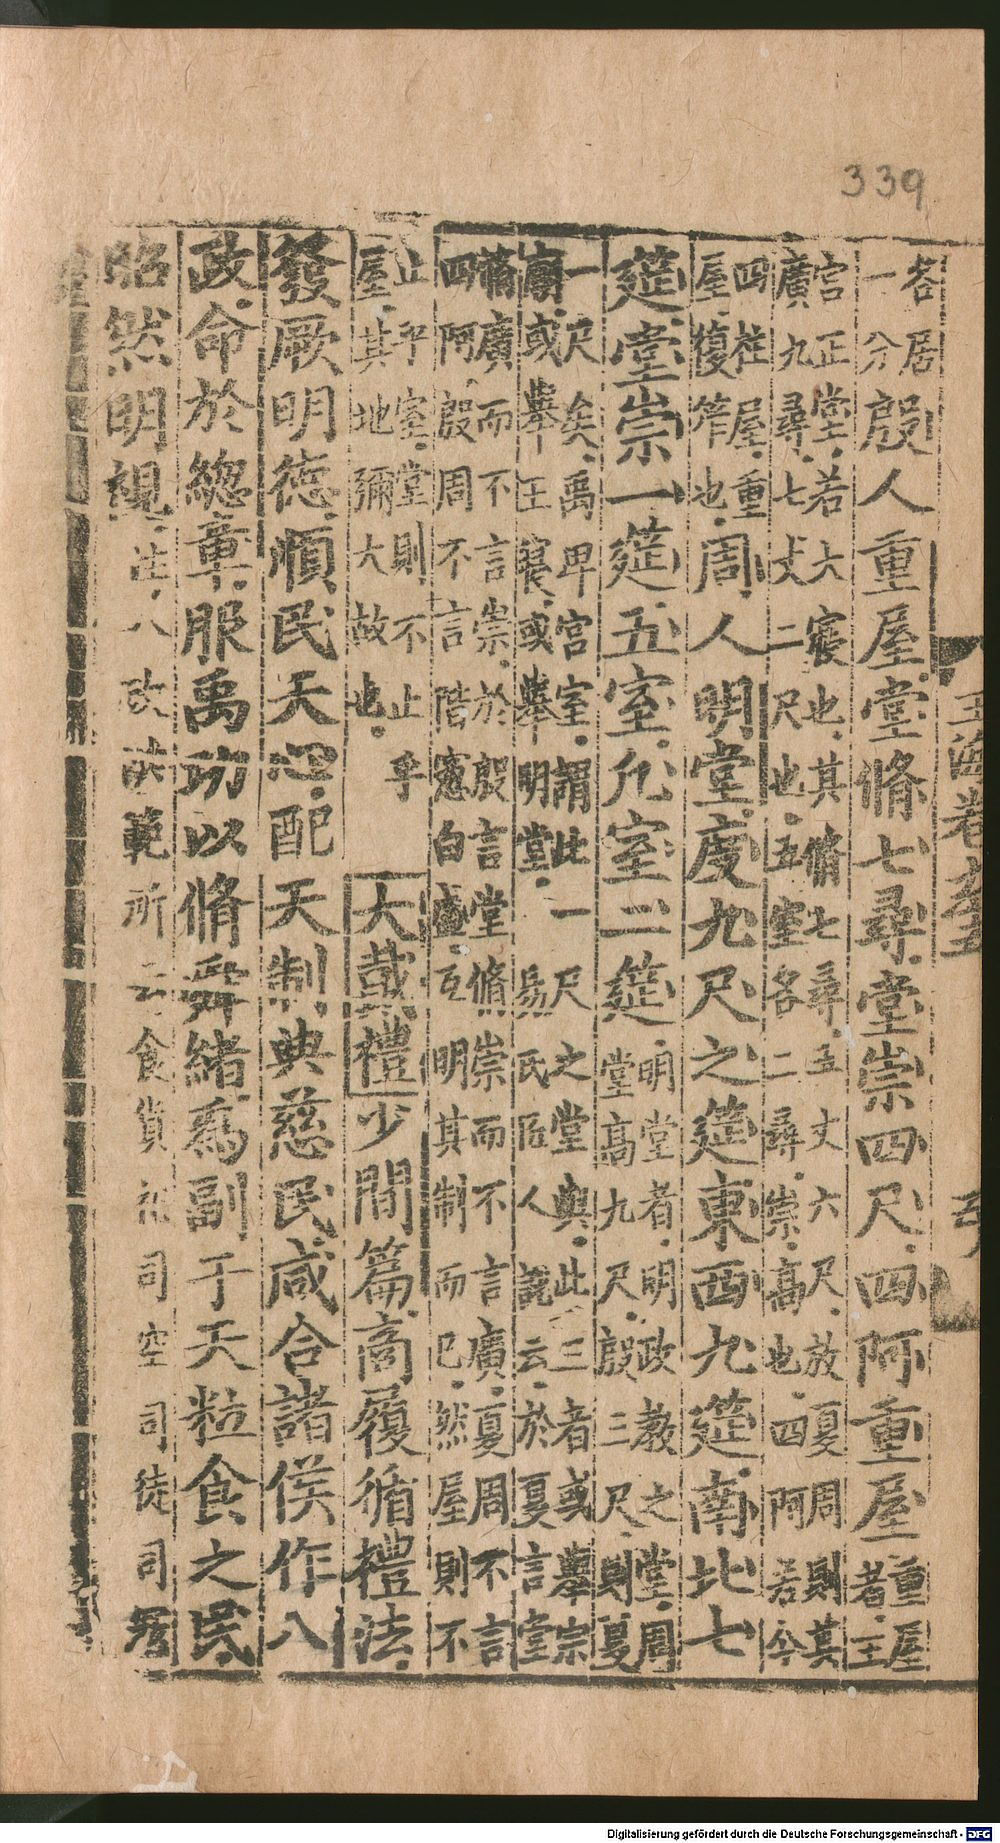 339
各居
一分
殷人重屋堂脩七尋堂崇四尺四阿重屋
重屋
者王
宮正堂若大寢也其脩七尋五丈六尺放夏周則其
廣九尋七丈二尺也五室各二尋崇高也四阿若今
四柱屋重
屋複笮也
周人明堂度九尺之筵東西九筵南北七
筵堂崇一筵五室凡室二筵
明堂者明政教之堂周
堂高九尺殷三尺則夏
一尺矣禹卑宮室謂此一尺之堂與此三者或舉宗
廟或舉王寢或舉明堂
易氏
說云於夏言堂
脩廣而不言崇於殷言堂脩崇而不言廣夏周不言
四阿殷周不言階窻白盛互明其制而已然屋則不
止乎室堂則不止乎
屋其地彌大故也
大戴禮少間篇商履循禮法
發厥明德順民天心配天制典慈民咸合諸侯作八
政命於總章服禹功以脩舜緒爲副于天粒食之民
昭然明視
注八政洪範所云食貨祀司空司徒司
玉海卷
Digitalisierung gefördert durch die Deutsche Forschungsgemeinschaft - DFG